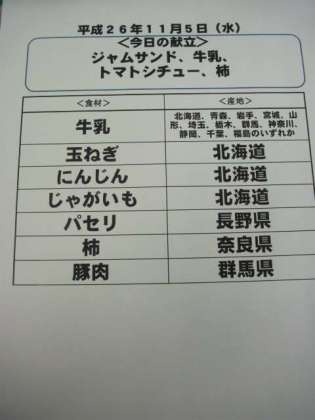 平成２６年１１月５日（水）
＜今日の献立＞
ジャムサンド、牛乳、
トマトシチュー、柿
＜食材＞ ＜産地＞
牛乳 北海道、青森、岩手、宮城、山
形、埼玉、栃木、群馬、神奈川、
静岡、千葉、福島のいずれか
玉ねぎ 北海道
にんじん 北海道
じゃがいも 北海道
パセリ 長野県
柿 奈良県
豚肉 群馬県